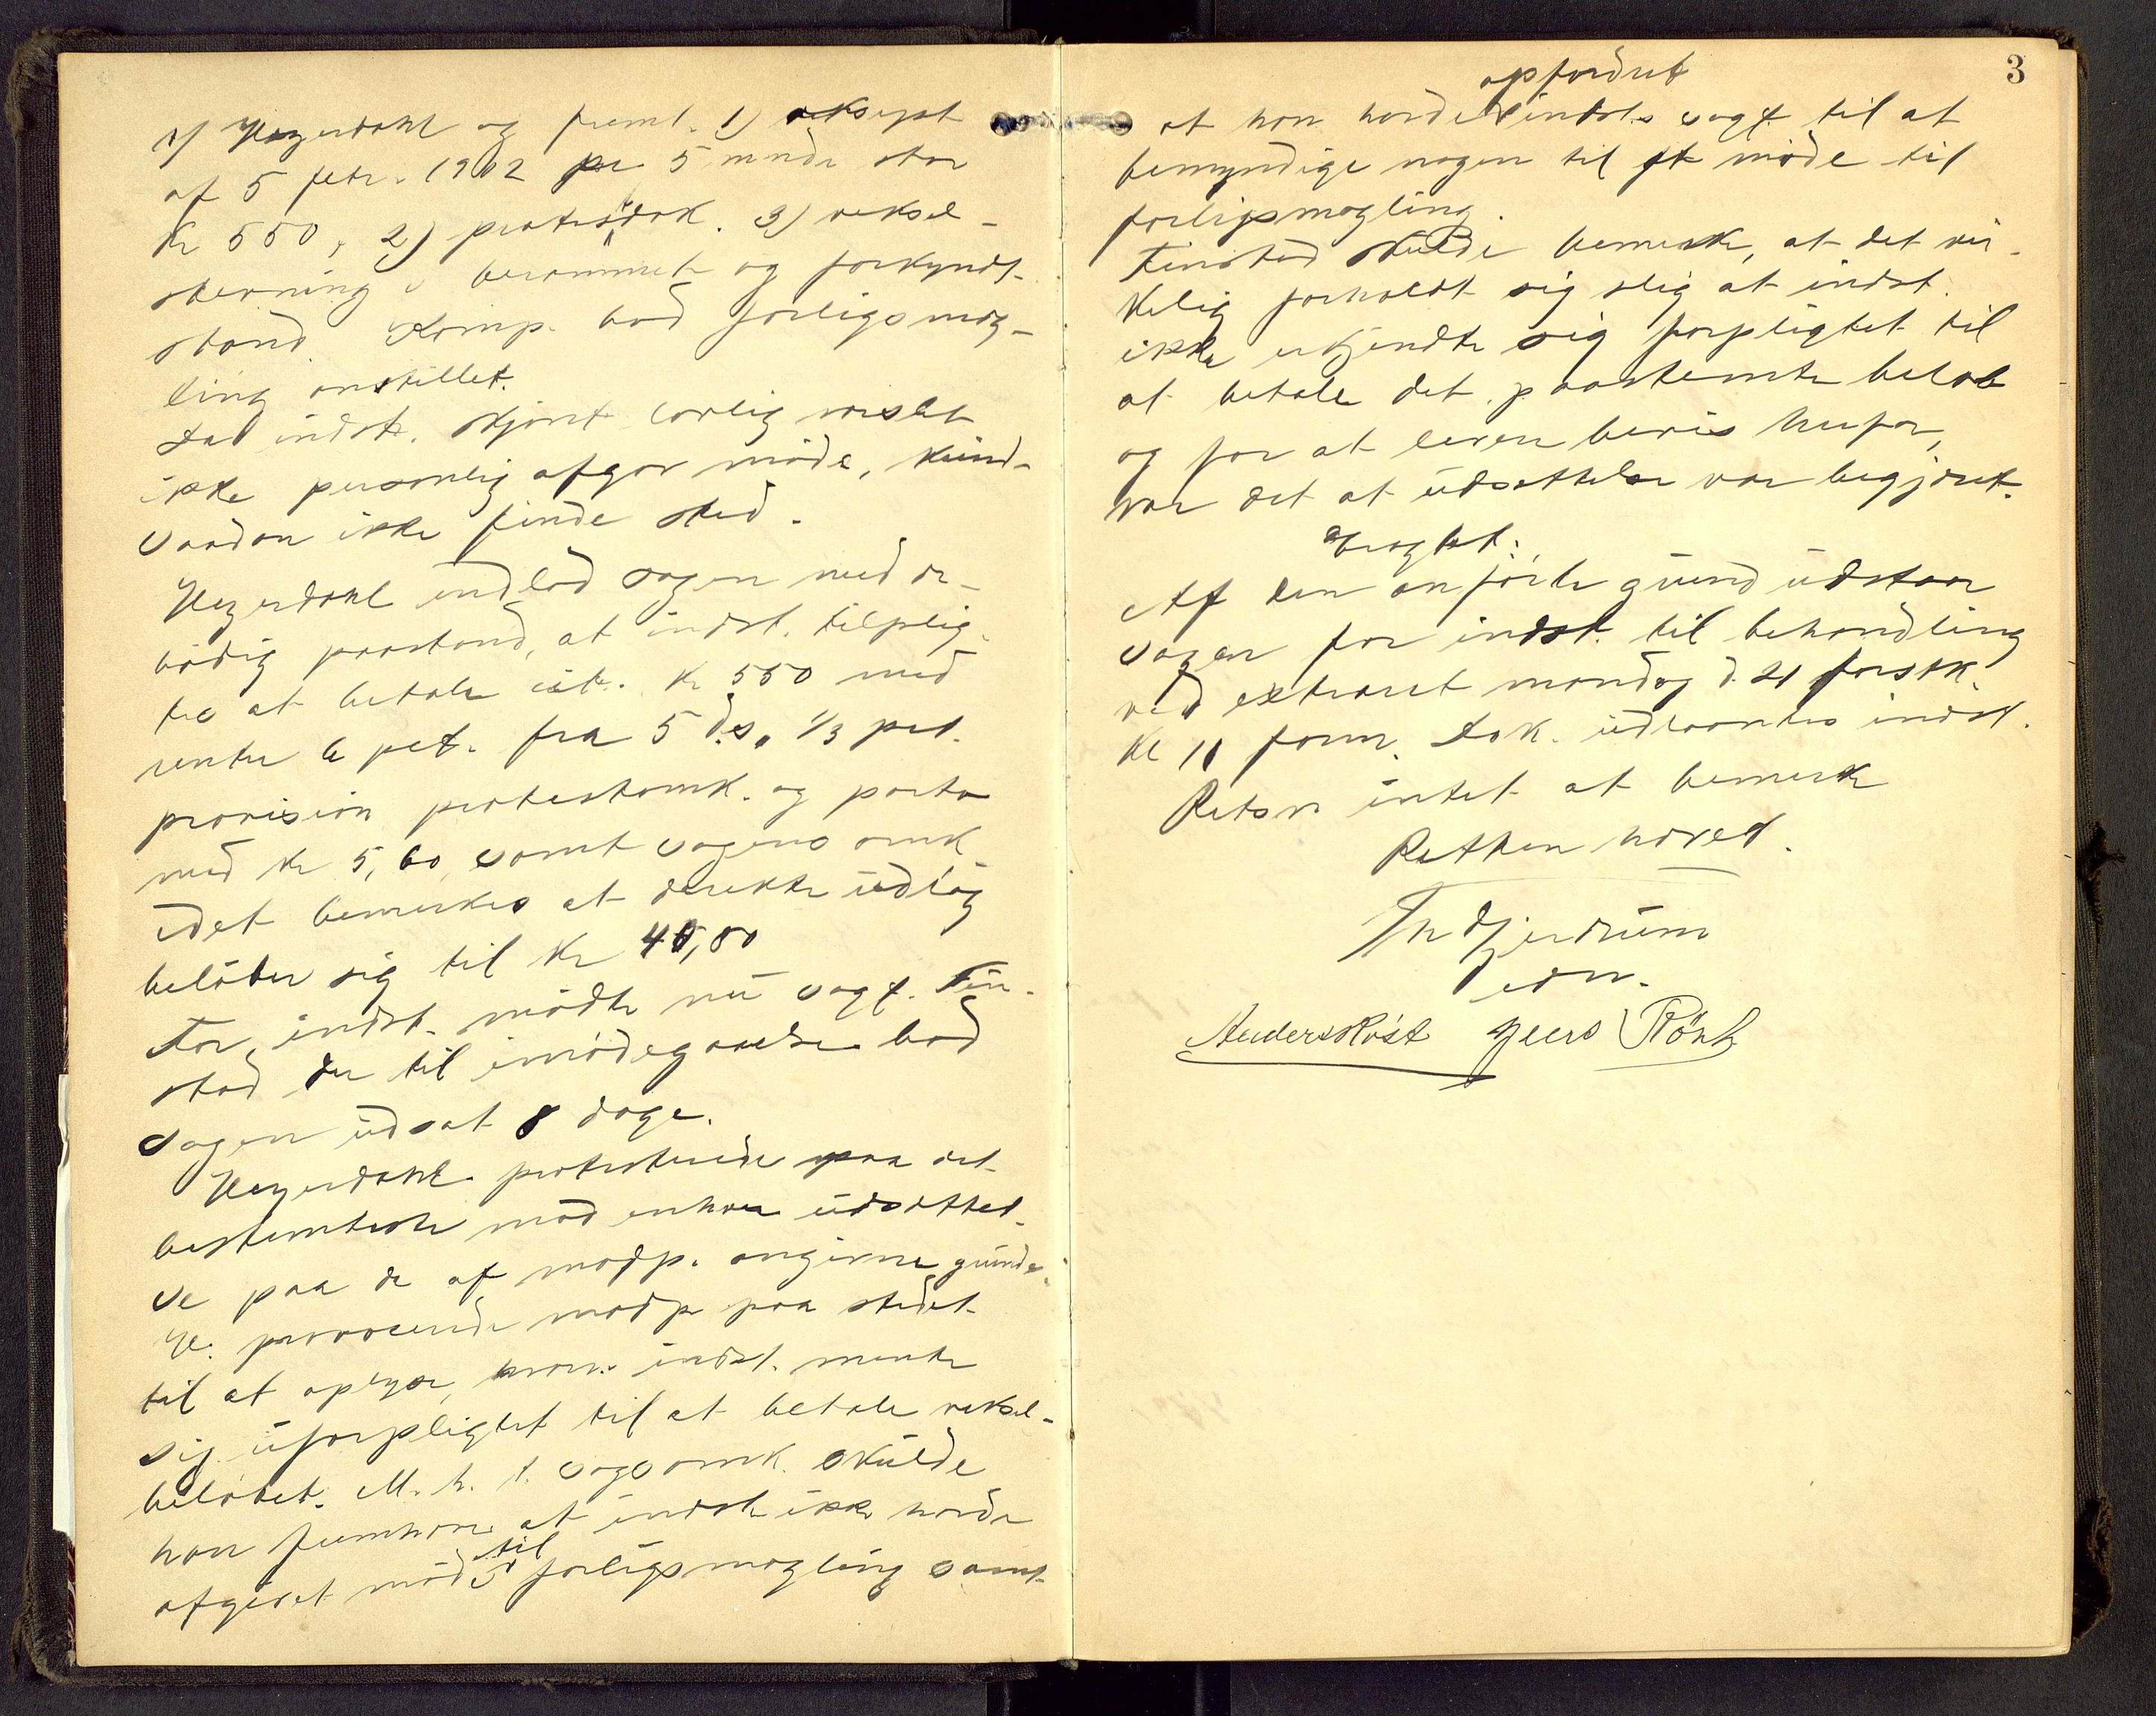 v/ Heyerdahl og freml. 1) aksept
af 5 febr. 1902 pr 5 mndr stor
Kr 550, 2) protestdok. 3) veksel-
stevning i berammet og forkyndt
stand. Komp. bad forligsmæg-
ling anstillet.
Da indst. skjønt lovlig varslet
ikke personlig afgav møde, kund-
saadan ikke finde sted.
Heyerdahl indlod sagen med ær-
bødig paastand, at indst. tilplig-
tes at betale cit. Kr 550 med
renter 6 pct. fra 5 ds, 1/3 pct.
provision protestomk. og porto
med Kr 5,60, samt sagens omk
idet bemerkes at direkte udlæg
beløber sig til Kr 45,80
For indst. mødte nu sagf. Fin-
stad der til imødegaaelse bad
sagen udsat 8 dage.
Heyerdahl protesterede paa det
bestemteste mod enhver udsættel-
se paa de af modp. angivne grunde.
H. provocerede modp paa stedet
til at oplyse, hvorv. indst. mente
sig uforpligtet til at betale veksel-
beløbet. M. h. t. sagsomk. skulde
han fremhæve at indst ikke havde
afgivet møde til forligsmægling samt
3
opfordret
at han havde indst.s sagf. til at
bemyndige nogen til at møde til
forligsmægling.
Finstad skulde bemerke, at det vir-
kelig forholdt sig slig at indst.
ikke erkjendte sig forpligtet til
at betale det paastemte beløb
og for at levere bevis herfor,
var det at udsættelse var begjært.
Eragtet:
Af den anførte grund udstaar
sagen for indst. til behandling
ved extraret mandag d. 21 førstk.
Kl 11 form. Dok. udlaantes indst.
Retsv. intet at bemerke
Retten hævet.
Th Gjerdrum
edsv.
Anders Røst Jens Rønh